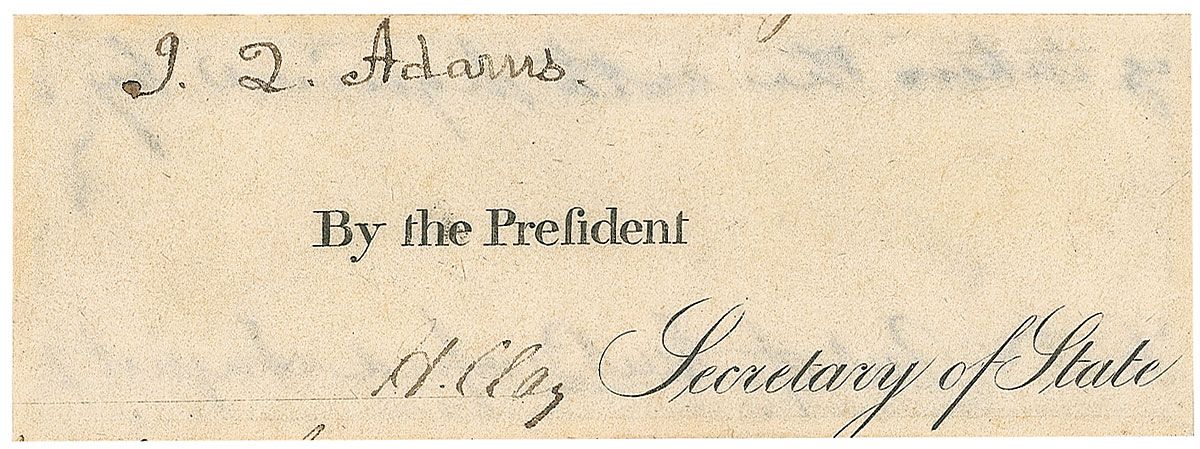 J. Q. Adams.
By the Preſident
H. Clay Secretary of State